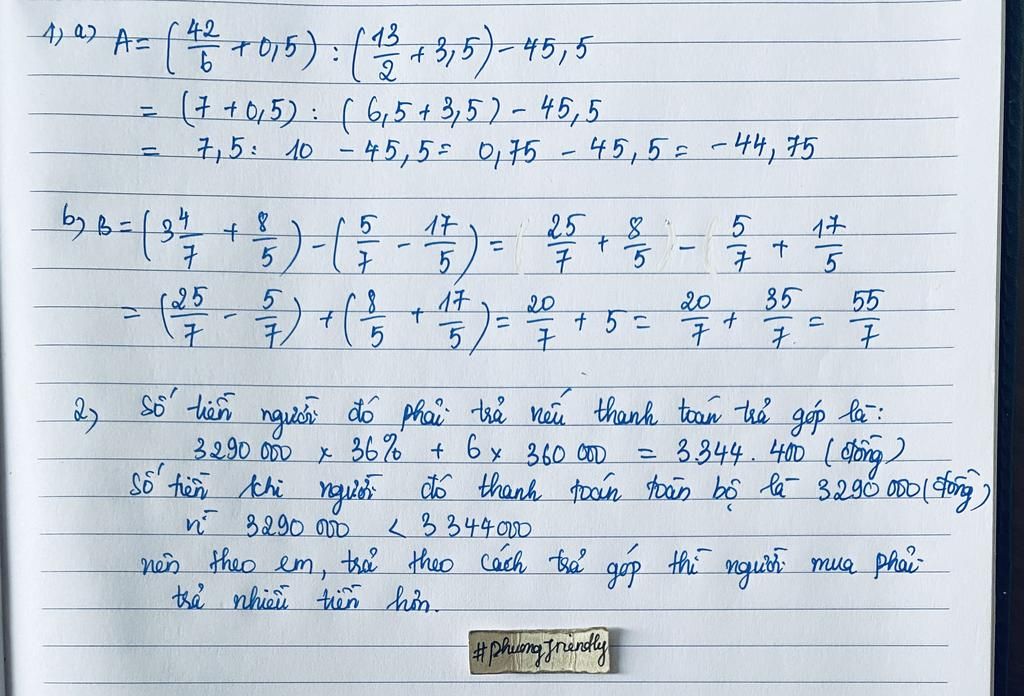 1) a) A = (42/6 + 0,5) : (13/2 + 3,5) - 45,5
= (7 + 0,5) : (6,5 + 3,5) - 45,5
= 7,5 : 10 - 45,5 = 0,75 - 45,5 = -44,75
b) B = (3 4/7 + 8/5) - (5/7 - 17/5) = 25/7 + 8/5 - 5/7 + 17/5
= (25/7 - 5/7) + (8/5 + 17/5) = 20/7 + 5 = 20/7 + 35/7 = 55/7
2) Số tiền người đó phải trả nếu thanh toán trả góp là:
3290 000 x 36% + 6 x 360 000 = 3.344.400 (đồng)
Số tiền khi người đó thanh toán toàn bộ là 3290 000 (đồng)
vì 3290 000 < 3 344000
nên theo em, trả theo cách trả góp thì người mua phải
trả nhiều tiền hơn.
#phuongfriendly